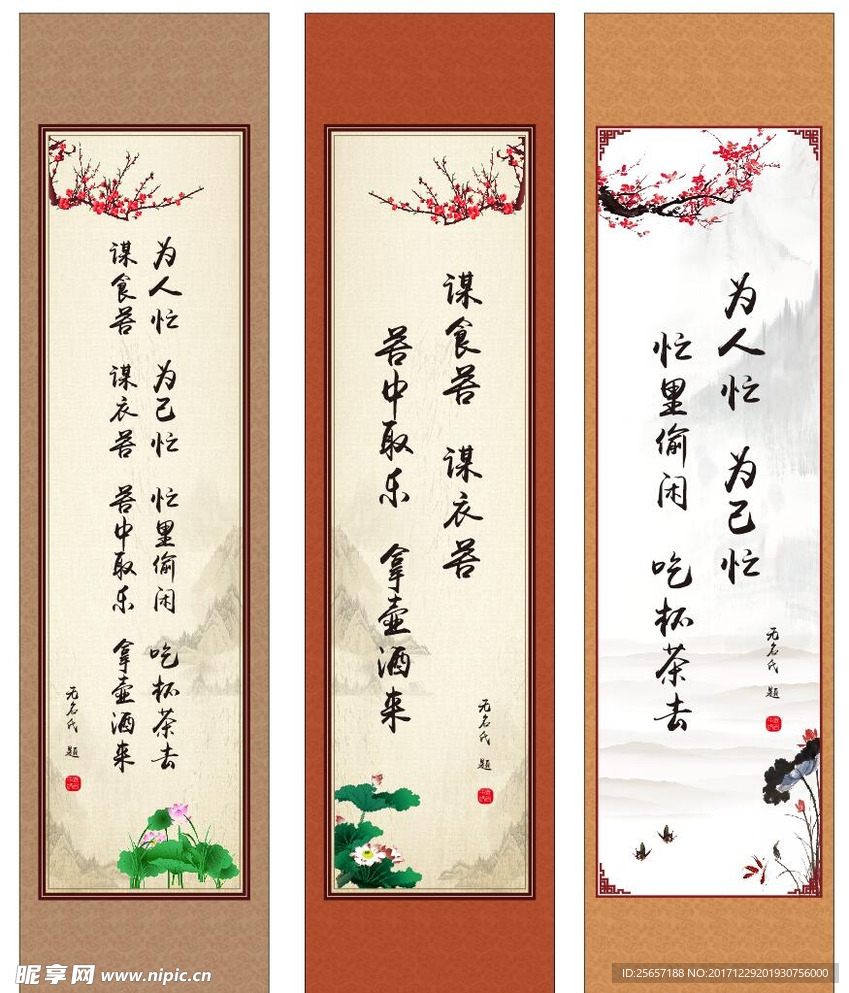 为人忙 为己忙 忙里偷闲 吃杯茶去
谋食苦 谋衣苦 苦中取乐 拿壶酒来
无名氏 题
谋食苦 谋衣苦
苦中取乐 拿壶酒来
无名氏 题
为人忙 为己忙
忙里偷闲 吃杯茶去
无名氏 题
昵享网 www.nipic.cn
ID:25657188 NO:20171229201930756000